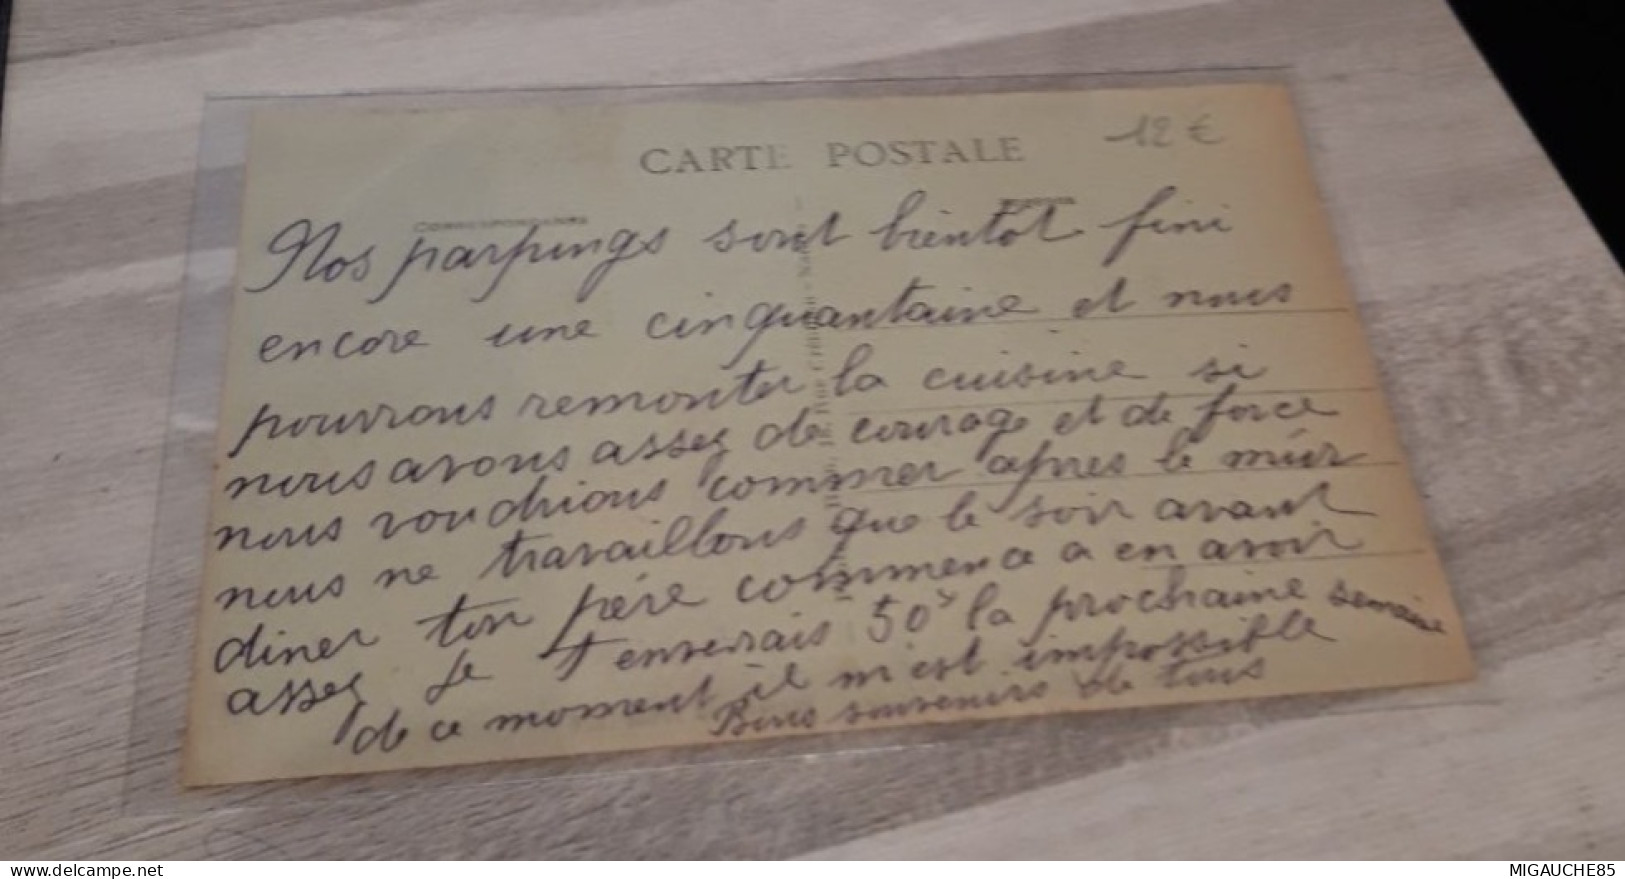 12 €
CARTE POSTALE
CORRESPONDANCE
Nos parpings sont bientot fini
encore une cinquantaine et nous
pouvrons remonter la cuisine si
nous avons assez de courage et de force
nous voudrions commer apres le mur
nous ne travaillons que le soir avant
diner ton père commence a en avoir
assez Je t enverrais 50 la prochaine semaine
de ce moment il m'est impossible
Bons souvenirs de tous
MIGAUCHE85